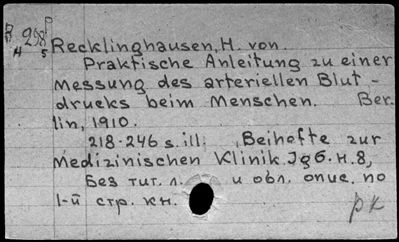 298
Recklinghausen, H. von.
Praktische Anleitung zu einer
messung des arteriellen Blut-
drucks beim Menschen. Ber-
lin, 1910.
218-246 s. ill. (Beihefte zur
Medizinischen Klinik. Jg 6. H. 8,
Без тит. л. и обл. опис. по
1-й стр. кн.
рк